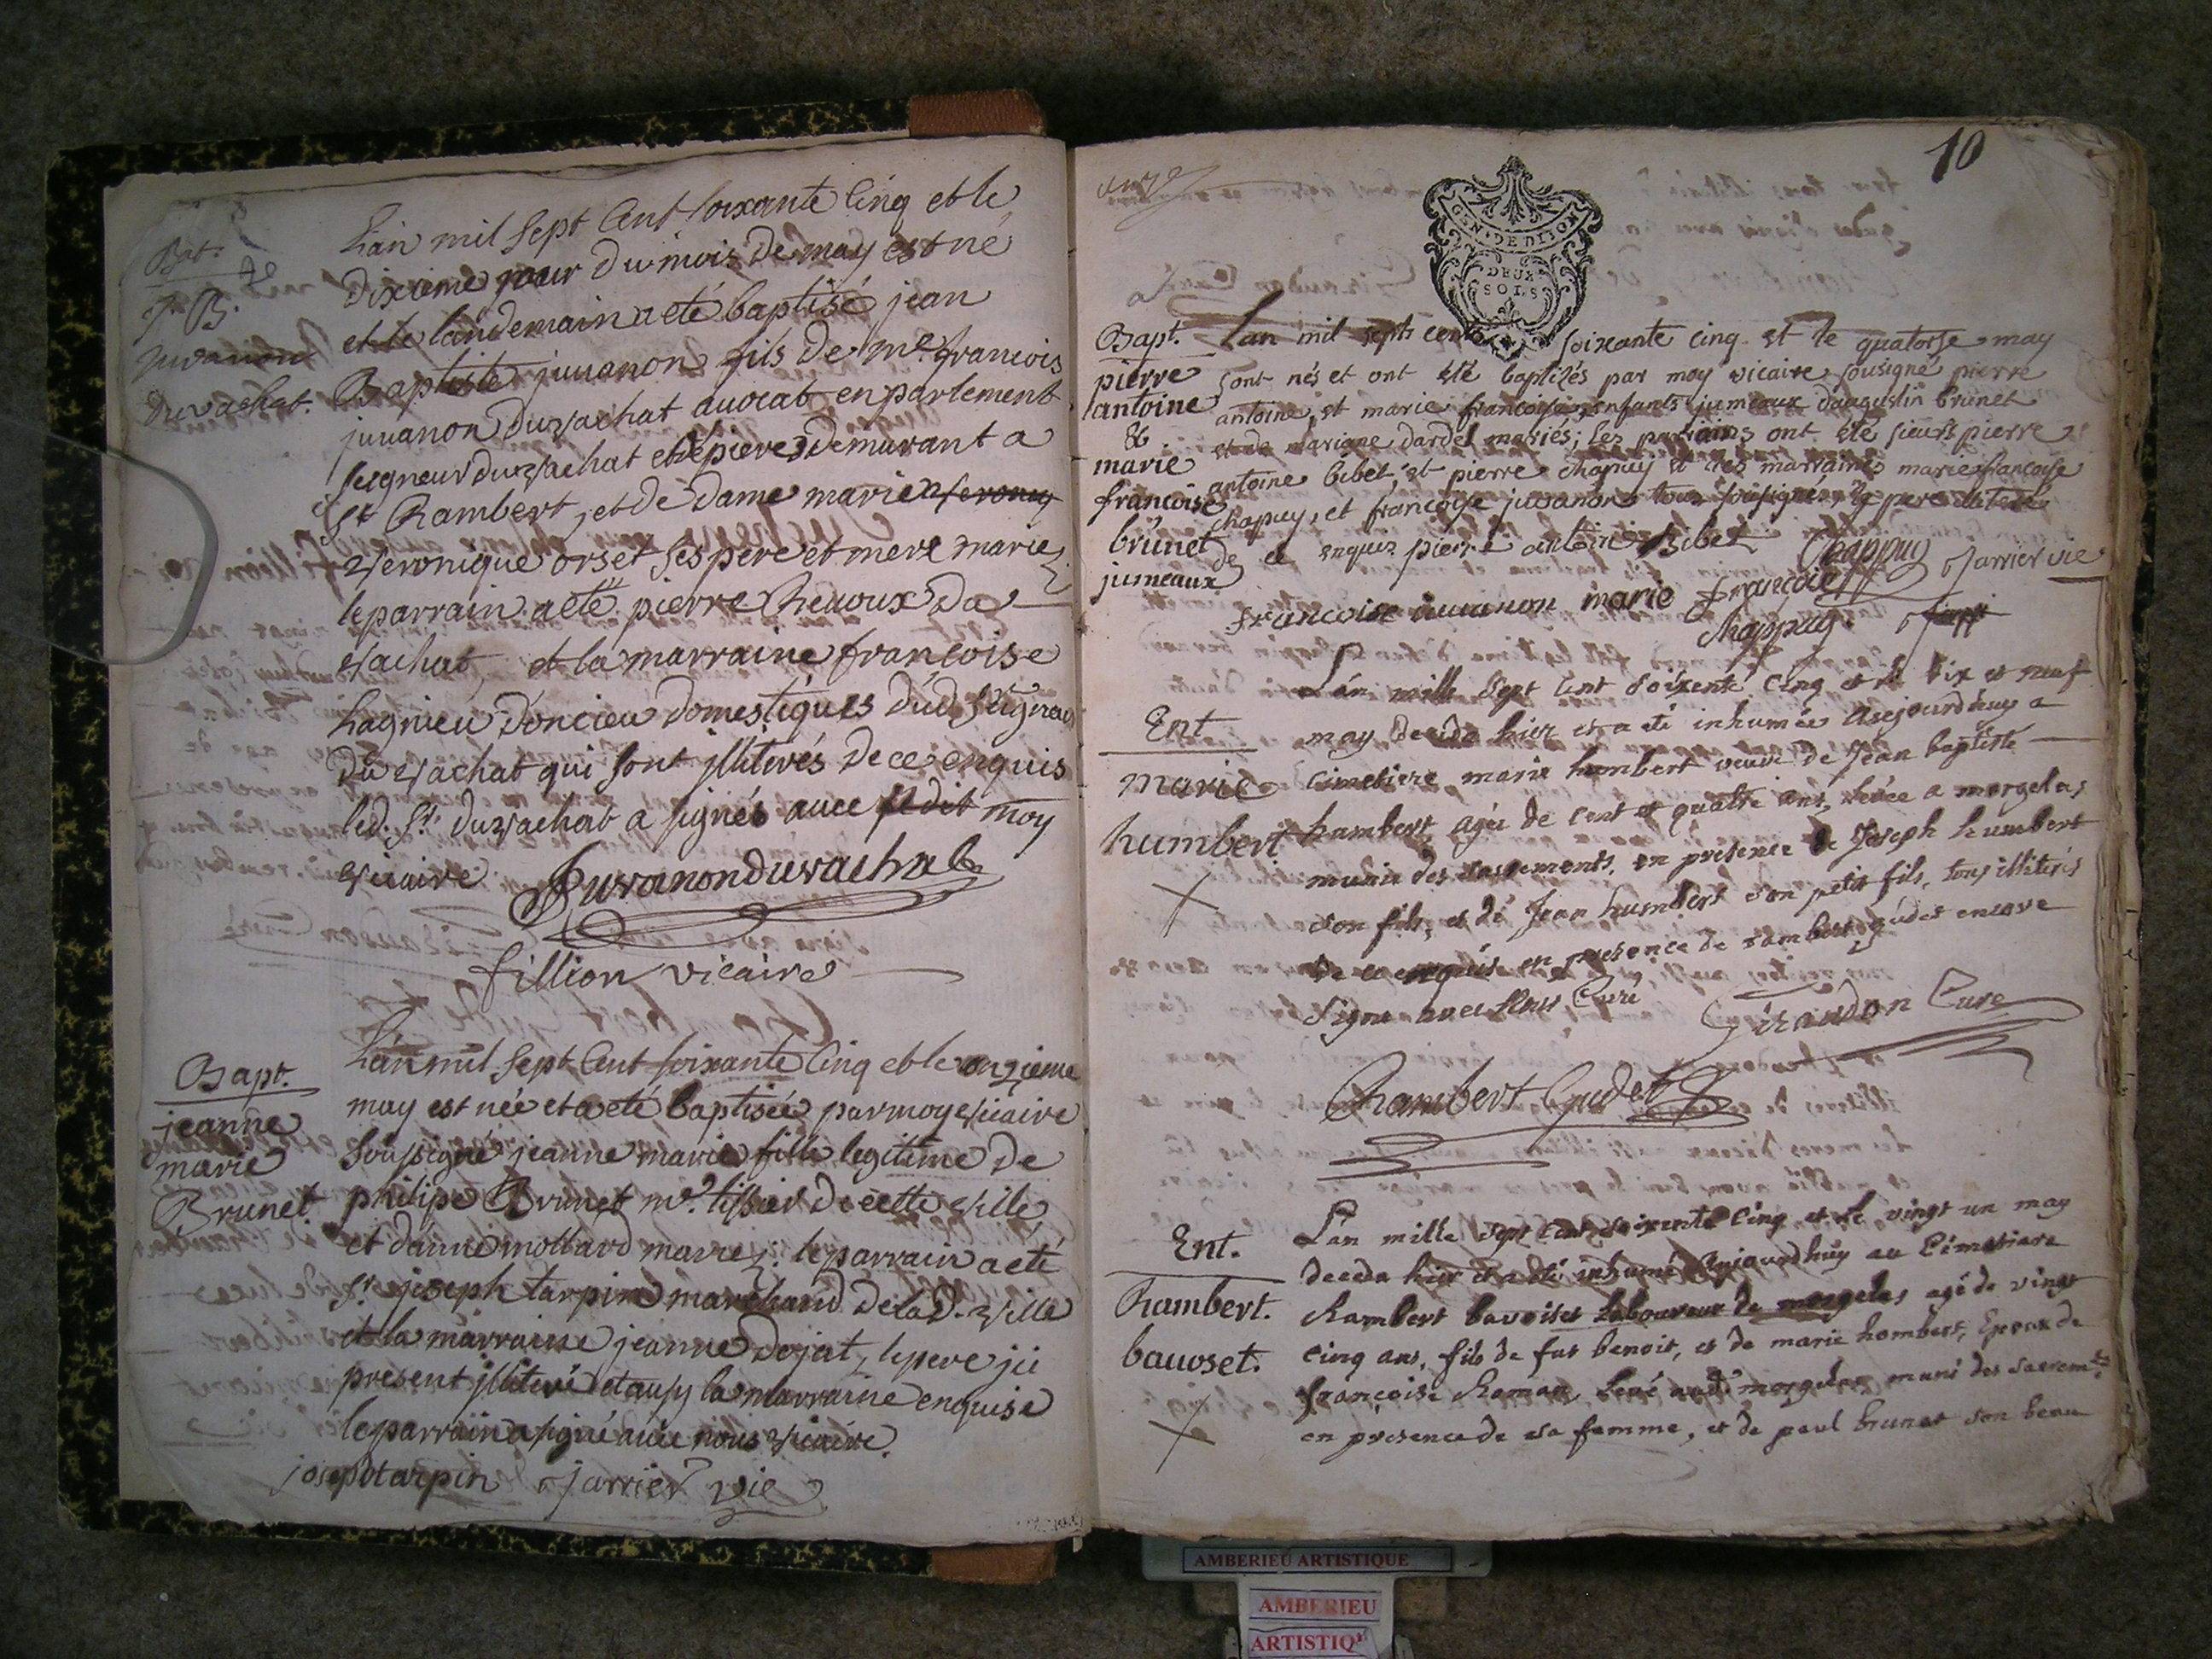 Bat.
J. B.
juvanon
duvachat.
Lan mil sept Cent soixante Cinq et le
dixieme jour du mois de may est né
et le landemain a eté baptisé jean
Baptiste juvanon fils de me. francois
juvanon duvachat avocat en parlement
seigneur du vachat et demurant a
st Rambert, et de dame marie
veronique orset ses pere et mere mariez
le parrain a eté pierre Chevoux da
vachat, et la marraine francoise
Lagnieu doncieu domestiques dud. seigneur
du vachat qui sont illiterés de ce enquis
led. sr. duvachat a signés avec moy
vicaire Juvanonduvachat
fillion vicaire
Bapt.
jeanne
marie
Brunet.
Lan mil sept Cent soixante Cinq et le onzieme
may est née et a eté baptisée par moy vicaire
sousigné jeanne marie fille legitime de
philipe Brunet me. tissier de cette ville
et danne mollard mariez. le parrain a eté
sr. joseph tarpin marchand de lad. ville
et la marraine jeanne dojat, le pere ici
present illiteré et aussy la marraine enquise
le parrain a signé avec nous vicaire.
joseph tarpin Jarrier vie
10
GEN. DE DIJON
DEUX
SOLS
Bapt.
pierre
antoine
&
marie
francoise
brunet
jumeaux
Lan mil septs cents soixante cinq et le quatorse may
sont nés et ont été baptizés par moy vicaire sousigné pierre
antoine, et marie francoise enfants jumeaux daugustin brunet
et de mariane dardel mariés; les parrains ont été sieurs pierre
antoine bibet, et pierre chapuy et les marraines marie francoise
chapuy, et francoise juvanon tous sousignés, le pere illiteré
de ce enquis pierre antoine Bibet Chappuy Jarrier vie
francoise juvanon marie francoise
chappuy
Ent
marie
humbert
L'an mille sept cent soixente cinq et le dix et neuf
may deceda hier et a été inhumée aujourd'huy a
cimetiere marie humbert veuve de Jean baptiste
humbert agée de cent et quatre ans, levée a morgelas
munie des sacrements, en présence de Joseph humbert
son fils, et de Jean humbert son petit fils, tous illiterés
de ce enquis en presence de rambert gudet encore
signé avec nous Curé Giraudon Curé
Rambert Gudet
Ent.
Rambert.
bavoset.
L'an mille sept cent soixente cinq et le vingt un may
deceda hier et a été inhumé aujourdhuy au Cimetiere
Rambert bavoiset laboureur de morgelas agé de vingt
cinq ans, fils de fut benoit, et de marie hombert, Epoux de
françoise Roman, levé aud. morgelas muni des sacremts.
en présence de sa femme, et de paul brunet son beau
AMBERIEU ARTISTIQUE
AMBERIEU
ARTISTIQ